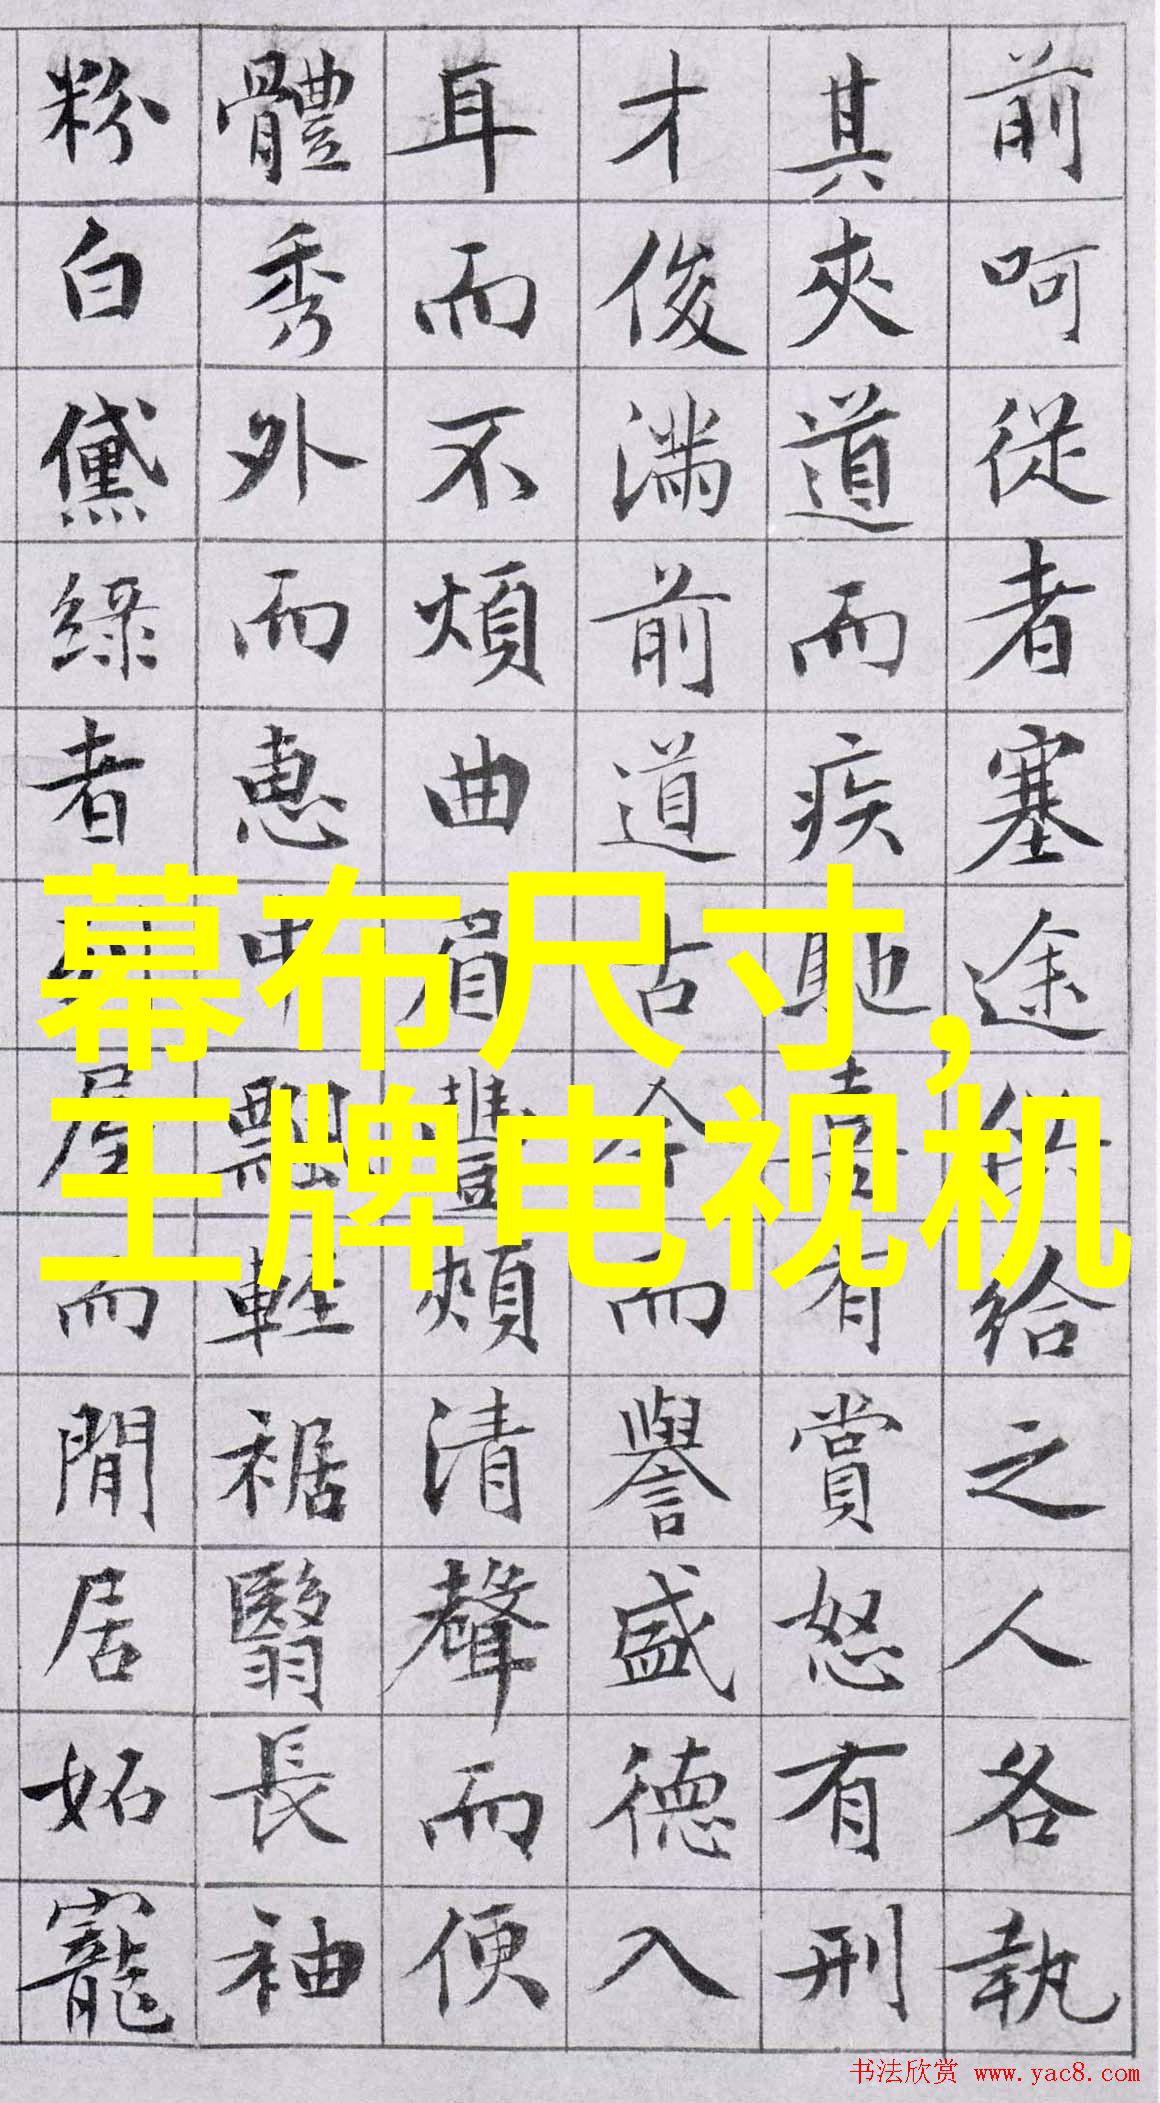 前呵從者塞途供給之人各執
其夾道而疾馳喜有賞怒有刑
才俊滿前道古今而譽盛德入
耳而不煩曲眉豐頰清聲而便
體秀外而惠中飄輕裾翳長袖
粉白黛綠者列屋而閒居妬寵
幕布尺寸,
王牌电视机
书法欣赏 www.yac8.com